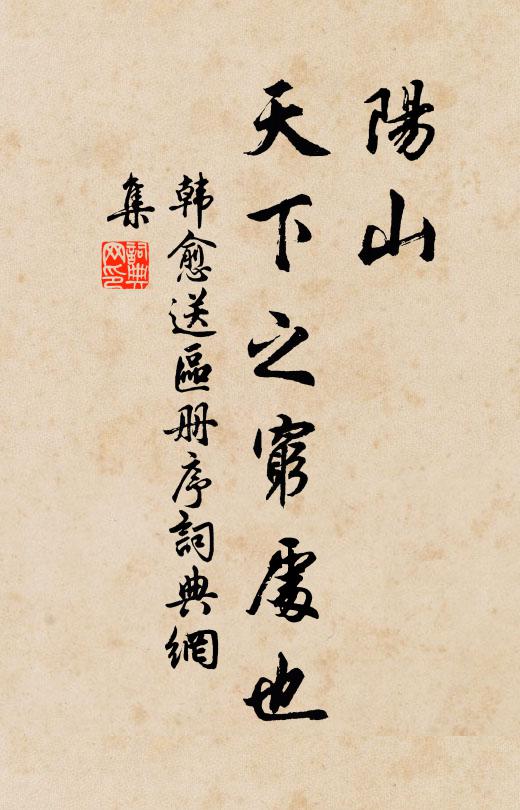 陽山
天下之窮處也
韩愈送區册序詞典網
集
詞典網印